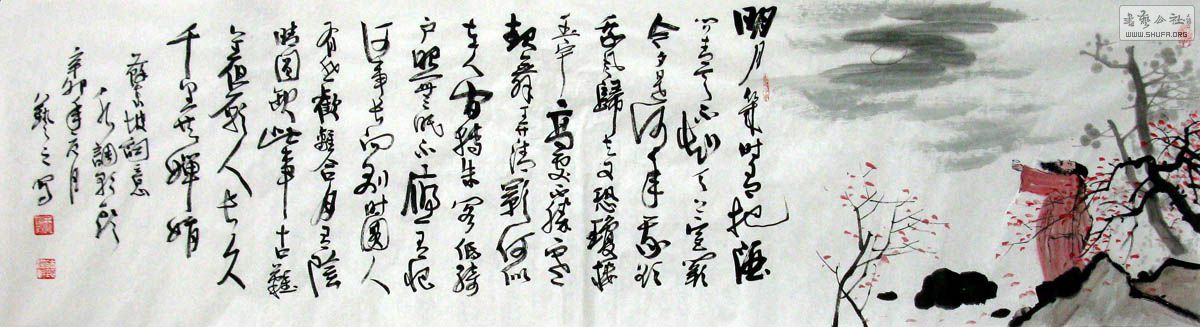 明月幾时有把酒
问青天不知天上宫闕
今夕是何年我欲
乘风歸去又恐瓊楼
玉宇高處不勝寒
起舞弄清影何似
在人间轉朱阁低绮
户照無眠不應有恨
何事长向别时圆人
有悲歡離合月有陰
晴圆缺此事古難
全但願人长久
千里共嬋娟
蘇东坡詞意
水調歌頭
辛卯年月
藝之写
书艺公社
WWW.SHUFA.ORG